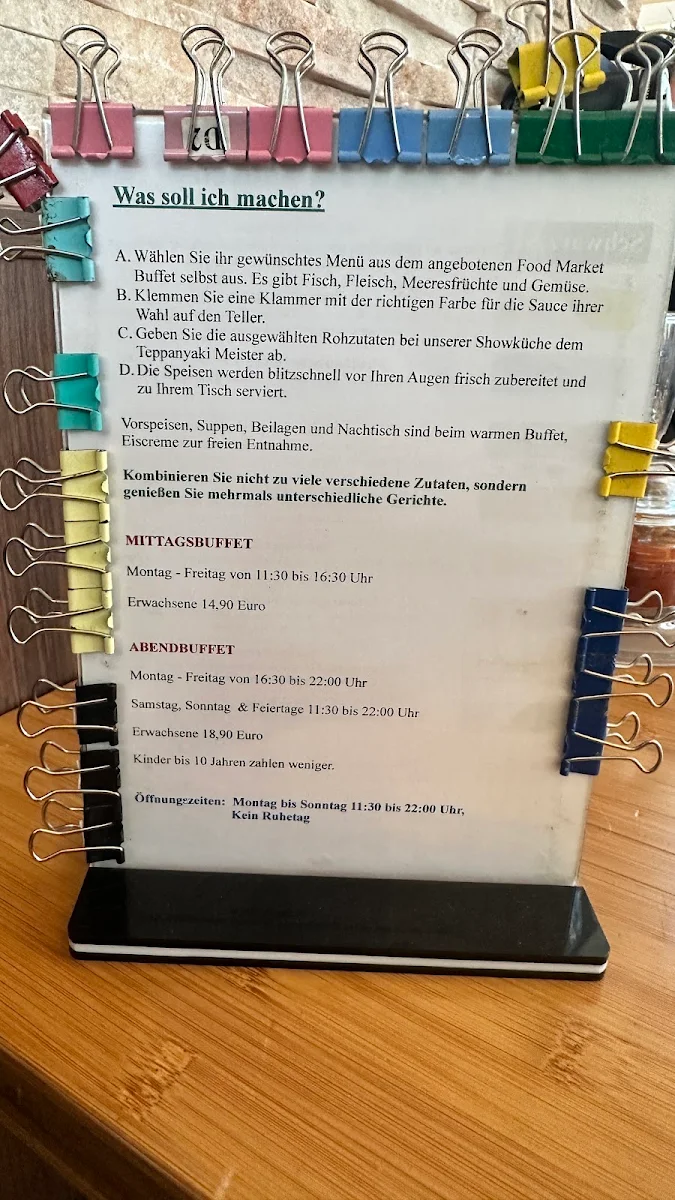 Was soll ich machen?
A. Wählen Sie ihr gewünschtes Menü aus dem angebotenen Food Market
Buffet selbst aus. Es gibt Fisch, Fleisch, Meeresfrüchte und Gemüse.
B. Klemmen Sie eine Klammer mit der richtigen Farbe für die Sauce ihrer
Wahl auf den Teller.
C. Geben Sie die ausgewählten Rohzutaten bei unserer Showküche dem
Teppanyaki Meister ab.
D. Die Speisen werden blitzschnell vor Ihren Augen frisch zubereitet und
zu Ihrem Tisch serviert.
Vorspeisen, Suppen, Beilagen und Nachtisch sind beim warmen Buffet,
Eiscreme zur freien Entnahme.
Kombinieren Sie nicht zu viele verschiedene Zutaten, sondern
genießen Sie mehrmals unterschiedliche Gerichte.
MITTAGSBUFFET
Montag - Freitag von 11:30 bis 16:30 Uhr
Erwachsene 14.90 Euro
ABENDBUFFET
Montag - Freitag von 16:30 bis 22:00 Uhr
Samstag, Sonntag & Feiertage 11:30 bis 22:00 Uhr
Erwachsene 18,90 Euro
Kinder bis 10 Jahren zahlen weniger.
Öffnungszeiten: Montag bis Sonntag 11:30 bis 22:00 Uhr,
Kein Ruhetag